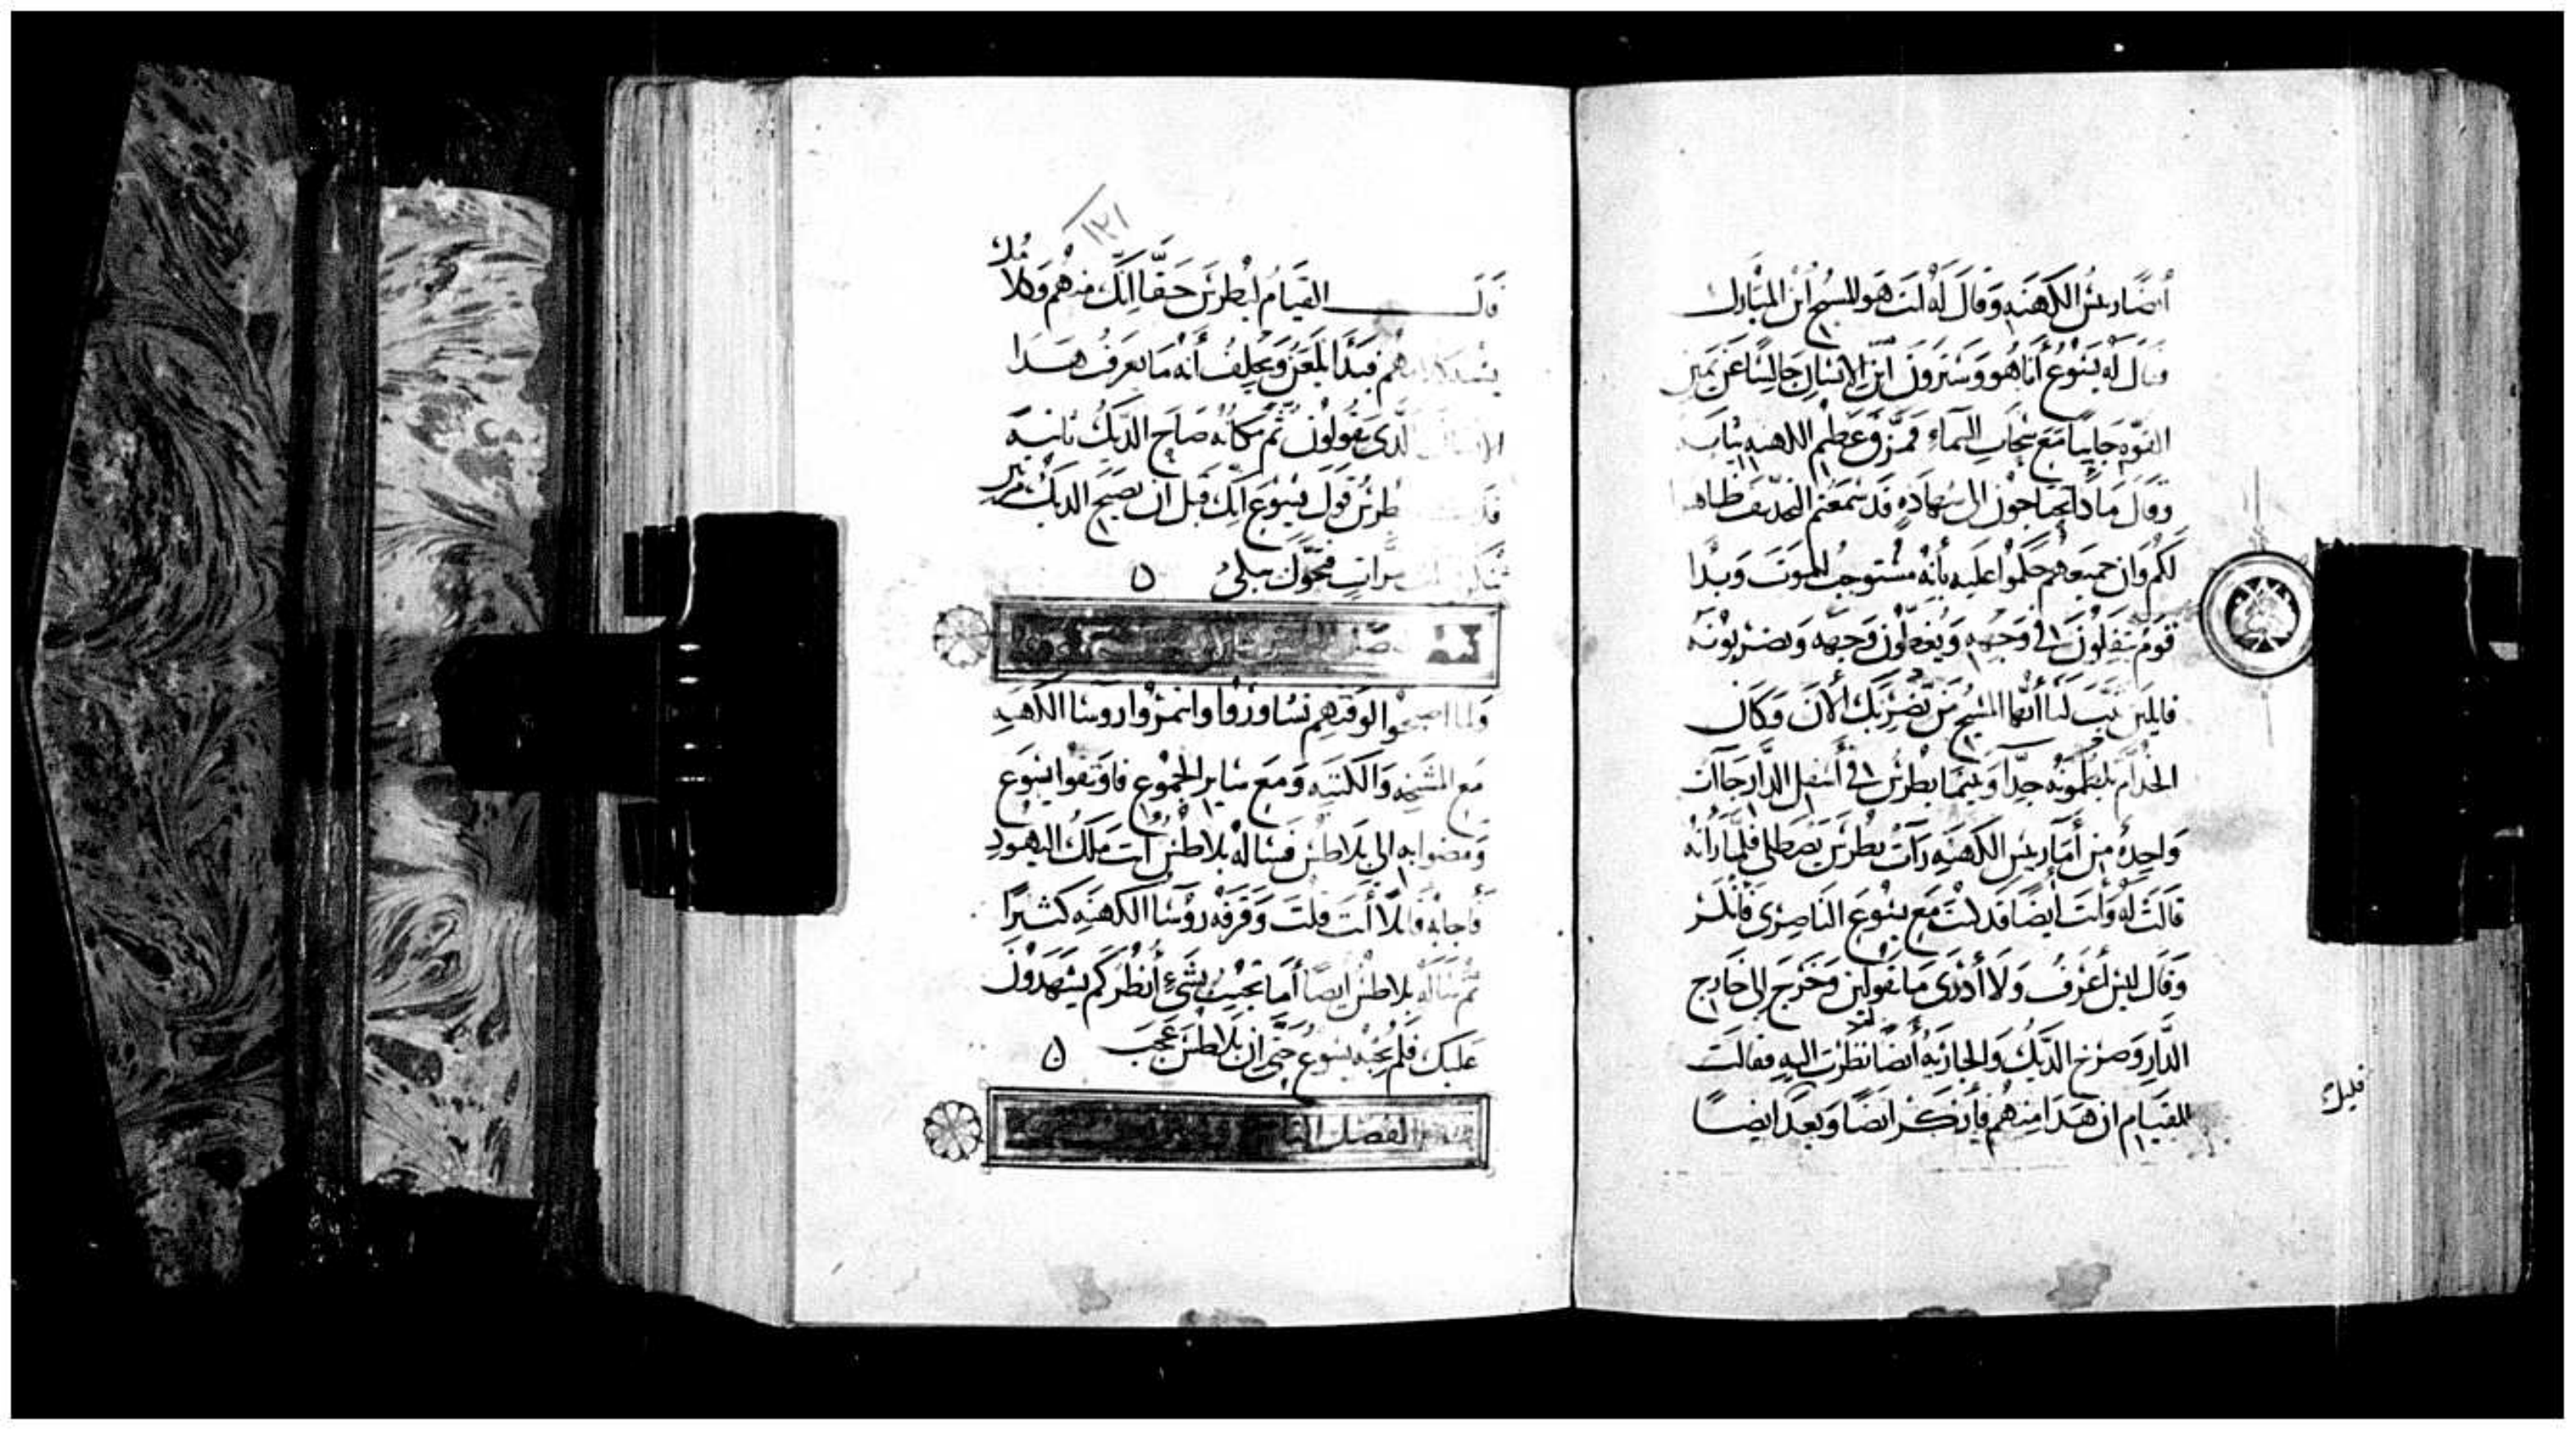 أيضا ريس الكهنه وقال له انت هو المسيح ابن المبارك
فقال له يسوع أنا هو وسترون ابن الانسان جالسا عن يمين
القوه جاييا مع سحاب السماء فمزق عظيم الكهنه ثيابه
وقال ما دا تحتاجون الى شهاده قد سمعتم التجديف ظاهرا
لكم وان جميعهم حكموا عليه بأنه مستوجب للموت وبدا
قوم يتفلون في وجهه ويغطون وجهه ويضربونه
قايلين تنب لنا أيها المسيح من يضربك الان وكان
الخدام يلطمونه جدا وبينما بطرس في أسفل الدار جاات
واحده من أما ريس الكهنه رات بطرس يصطلى فلما رأته
قالت له وانت أيضا قد كنت مع يسوع الناصرى فانكر
وقال ليس أعرف ولا أدرى ما تقولين وخرج الى خارج
الدار وصرخ الديك والجاريه أيضا نظرت اليه فقالت
للقيام ان هدا منهم فأنكر ايضا وبعد ايضا
قليل
١٢١
قال القيام لبطرس حقا انك منهم وكلا
مك
هم فبدا يلعن ويحلف أنه ما يعرف هدا
الدى يقولون ثم مكانه صاح الديك تانيه
بطرس قول يسوع انك قبل ان يصيح الديك مرتين
مرات فتحول يبكى ه
ولما اصبحوا الوقتهم تشاوروا واتمروا روسا الكهنه
مع المشيخه والكتبه ومع ساير الجموع فاوثقوا يسوع
ومضوا به الى بلاطس فساله بلاطس أنت ملك اليهود
فأجابه قايلا أنت قلت وقرفه روسا الكهنه كثيرا
ثم ساله بلاطس ايضا أما تجيب بشيء أنظر كم يشهدون
عليك فلم يجبه يسوع حتى ان بلاطس عجب ه
الفصل